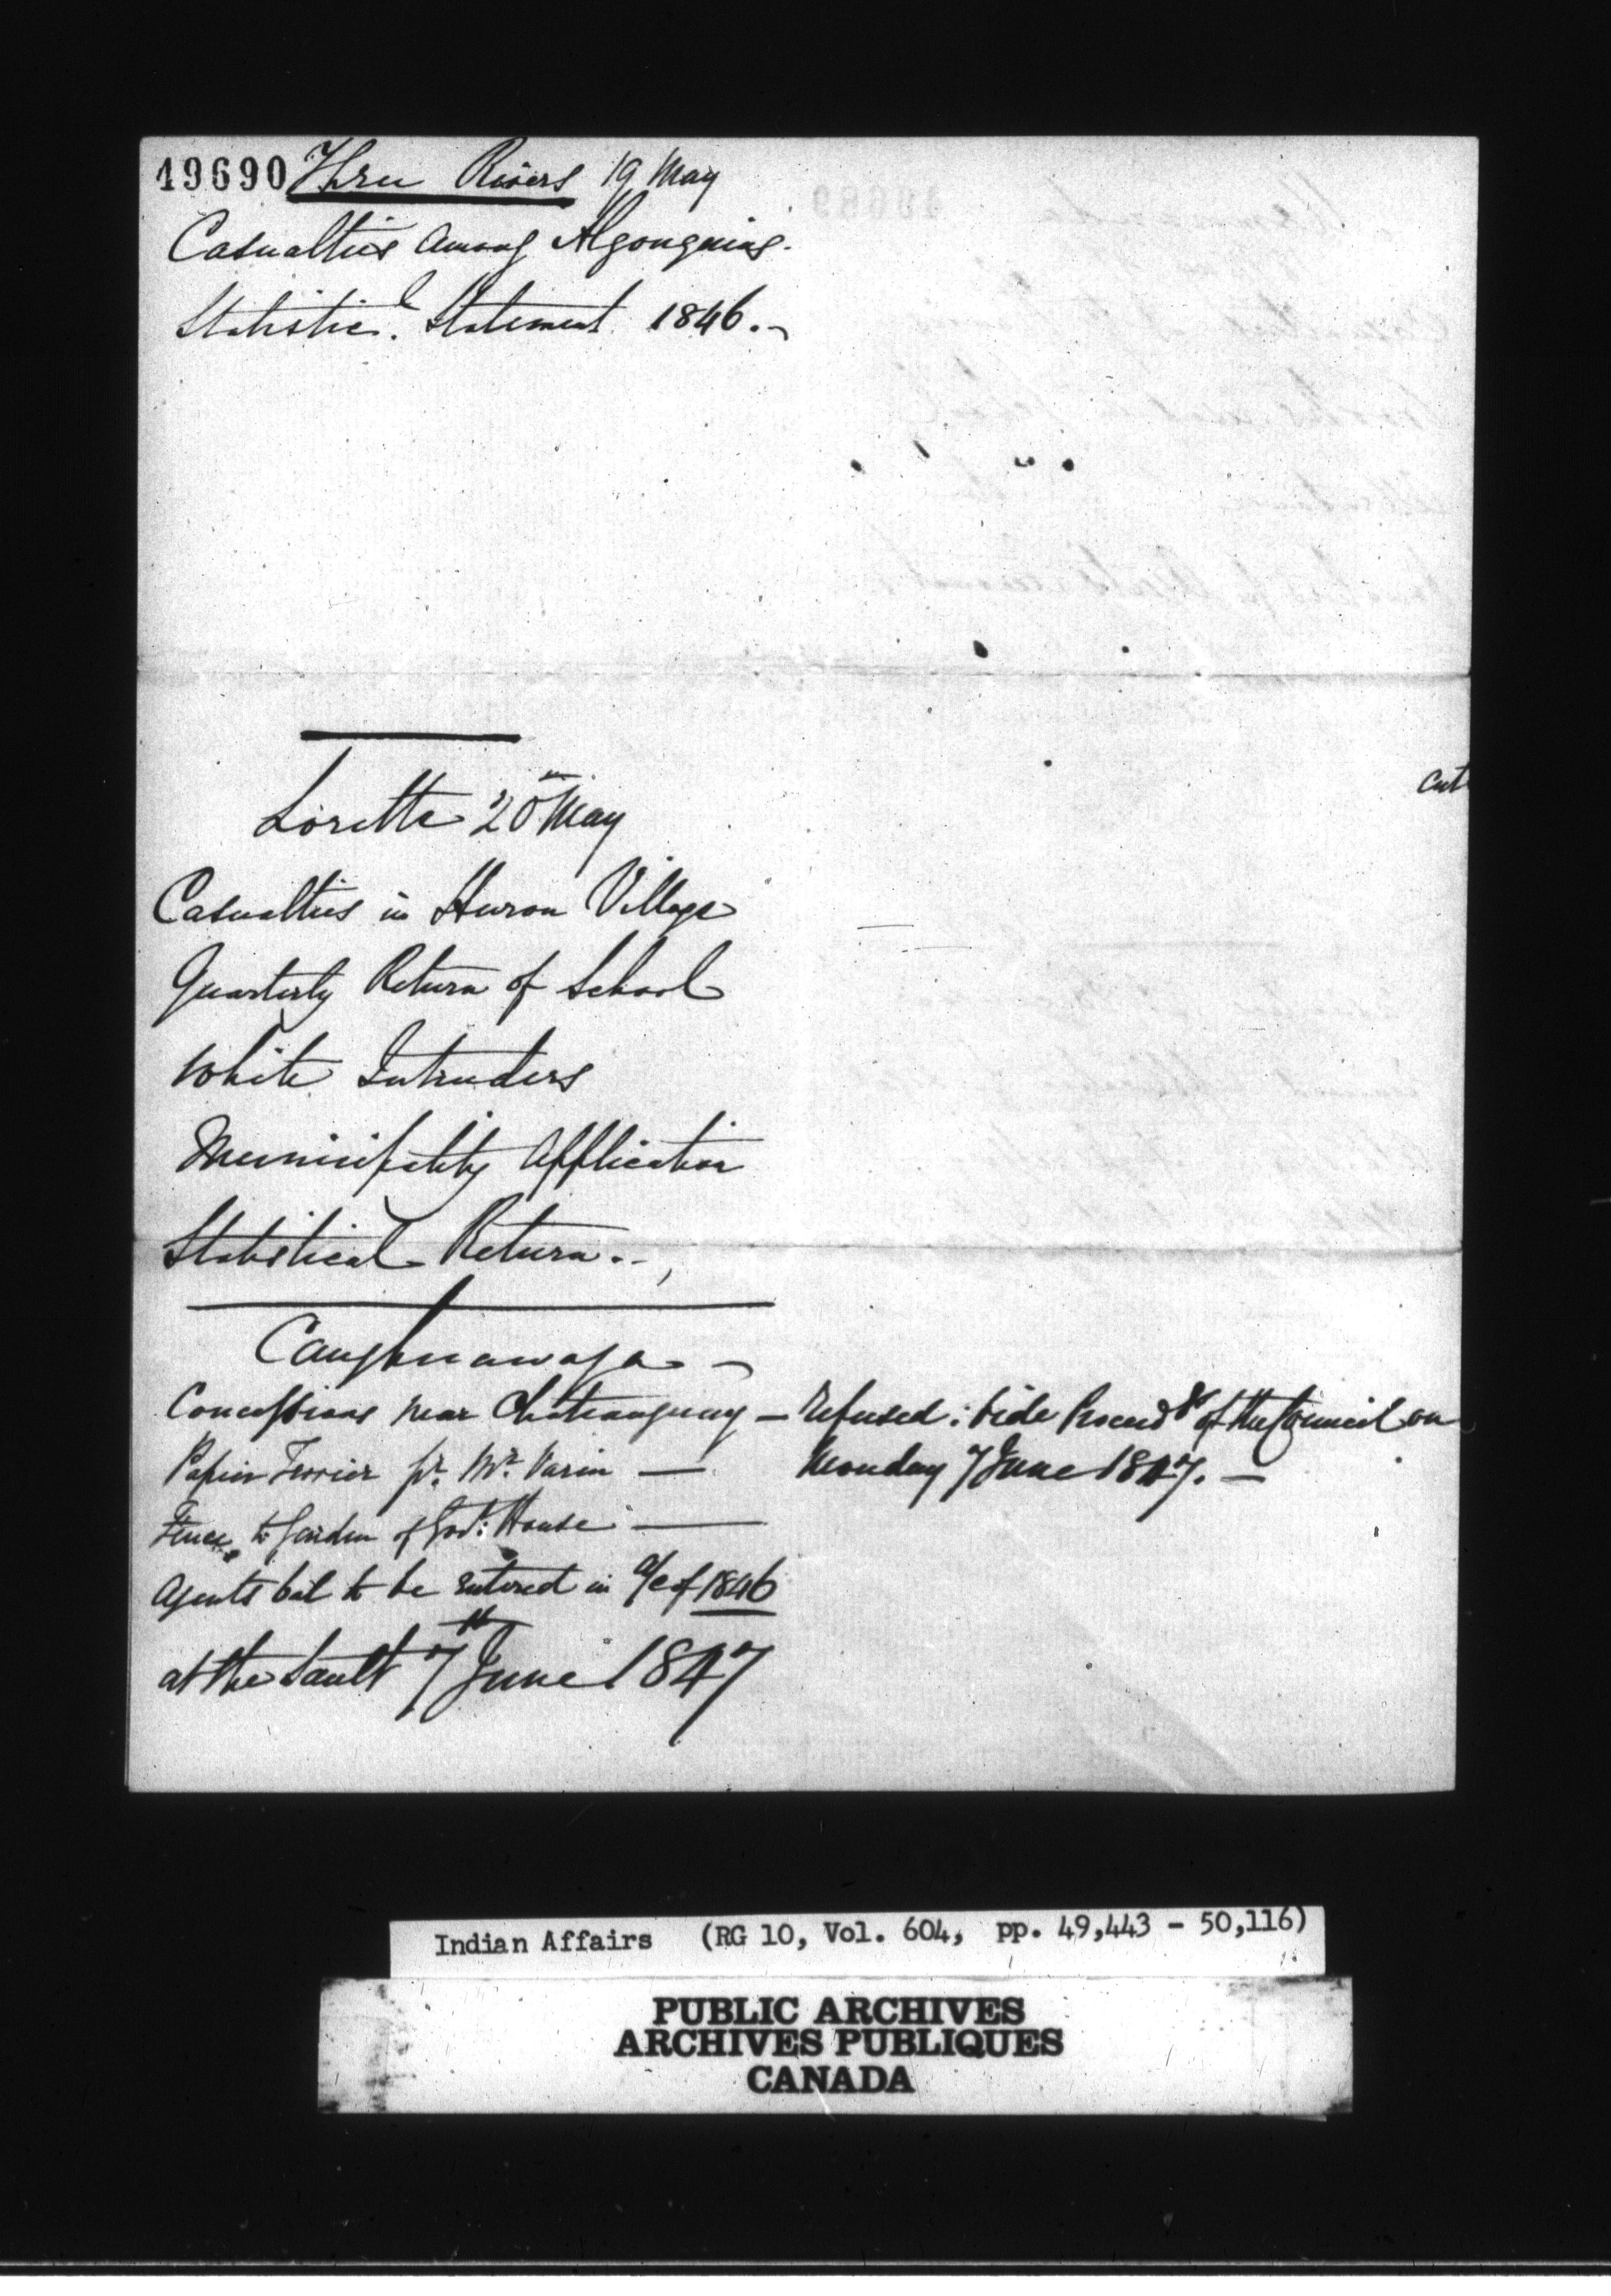 49690 Three Rivers 19 May
Casualties among Algonquins.
Statistic.l Statement 1846.
Lorette 20 May
Casualties in Huron Village
Quarterly Return of School
White Intruders
Municipality Application
Statistical Return.
Caughnawaga
Concessions near Chateauguay — refused: vide Proceed.gs of the Council on
Monday 7 June 1847. —
Papier Terrier pr. Mr. Varin —
Fence to Garden of Govt: House —
Agents bal to be entered in a/c of 1846
at the Sault 7th June 1847
cut
Indian Affairs (RG 10, Vol. 604, pp. 49,443 - 50,116)
PUBLIC ARCHIVES
ARCHIVES PUBLIQUES
CANADA